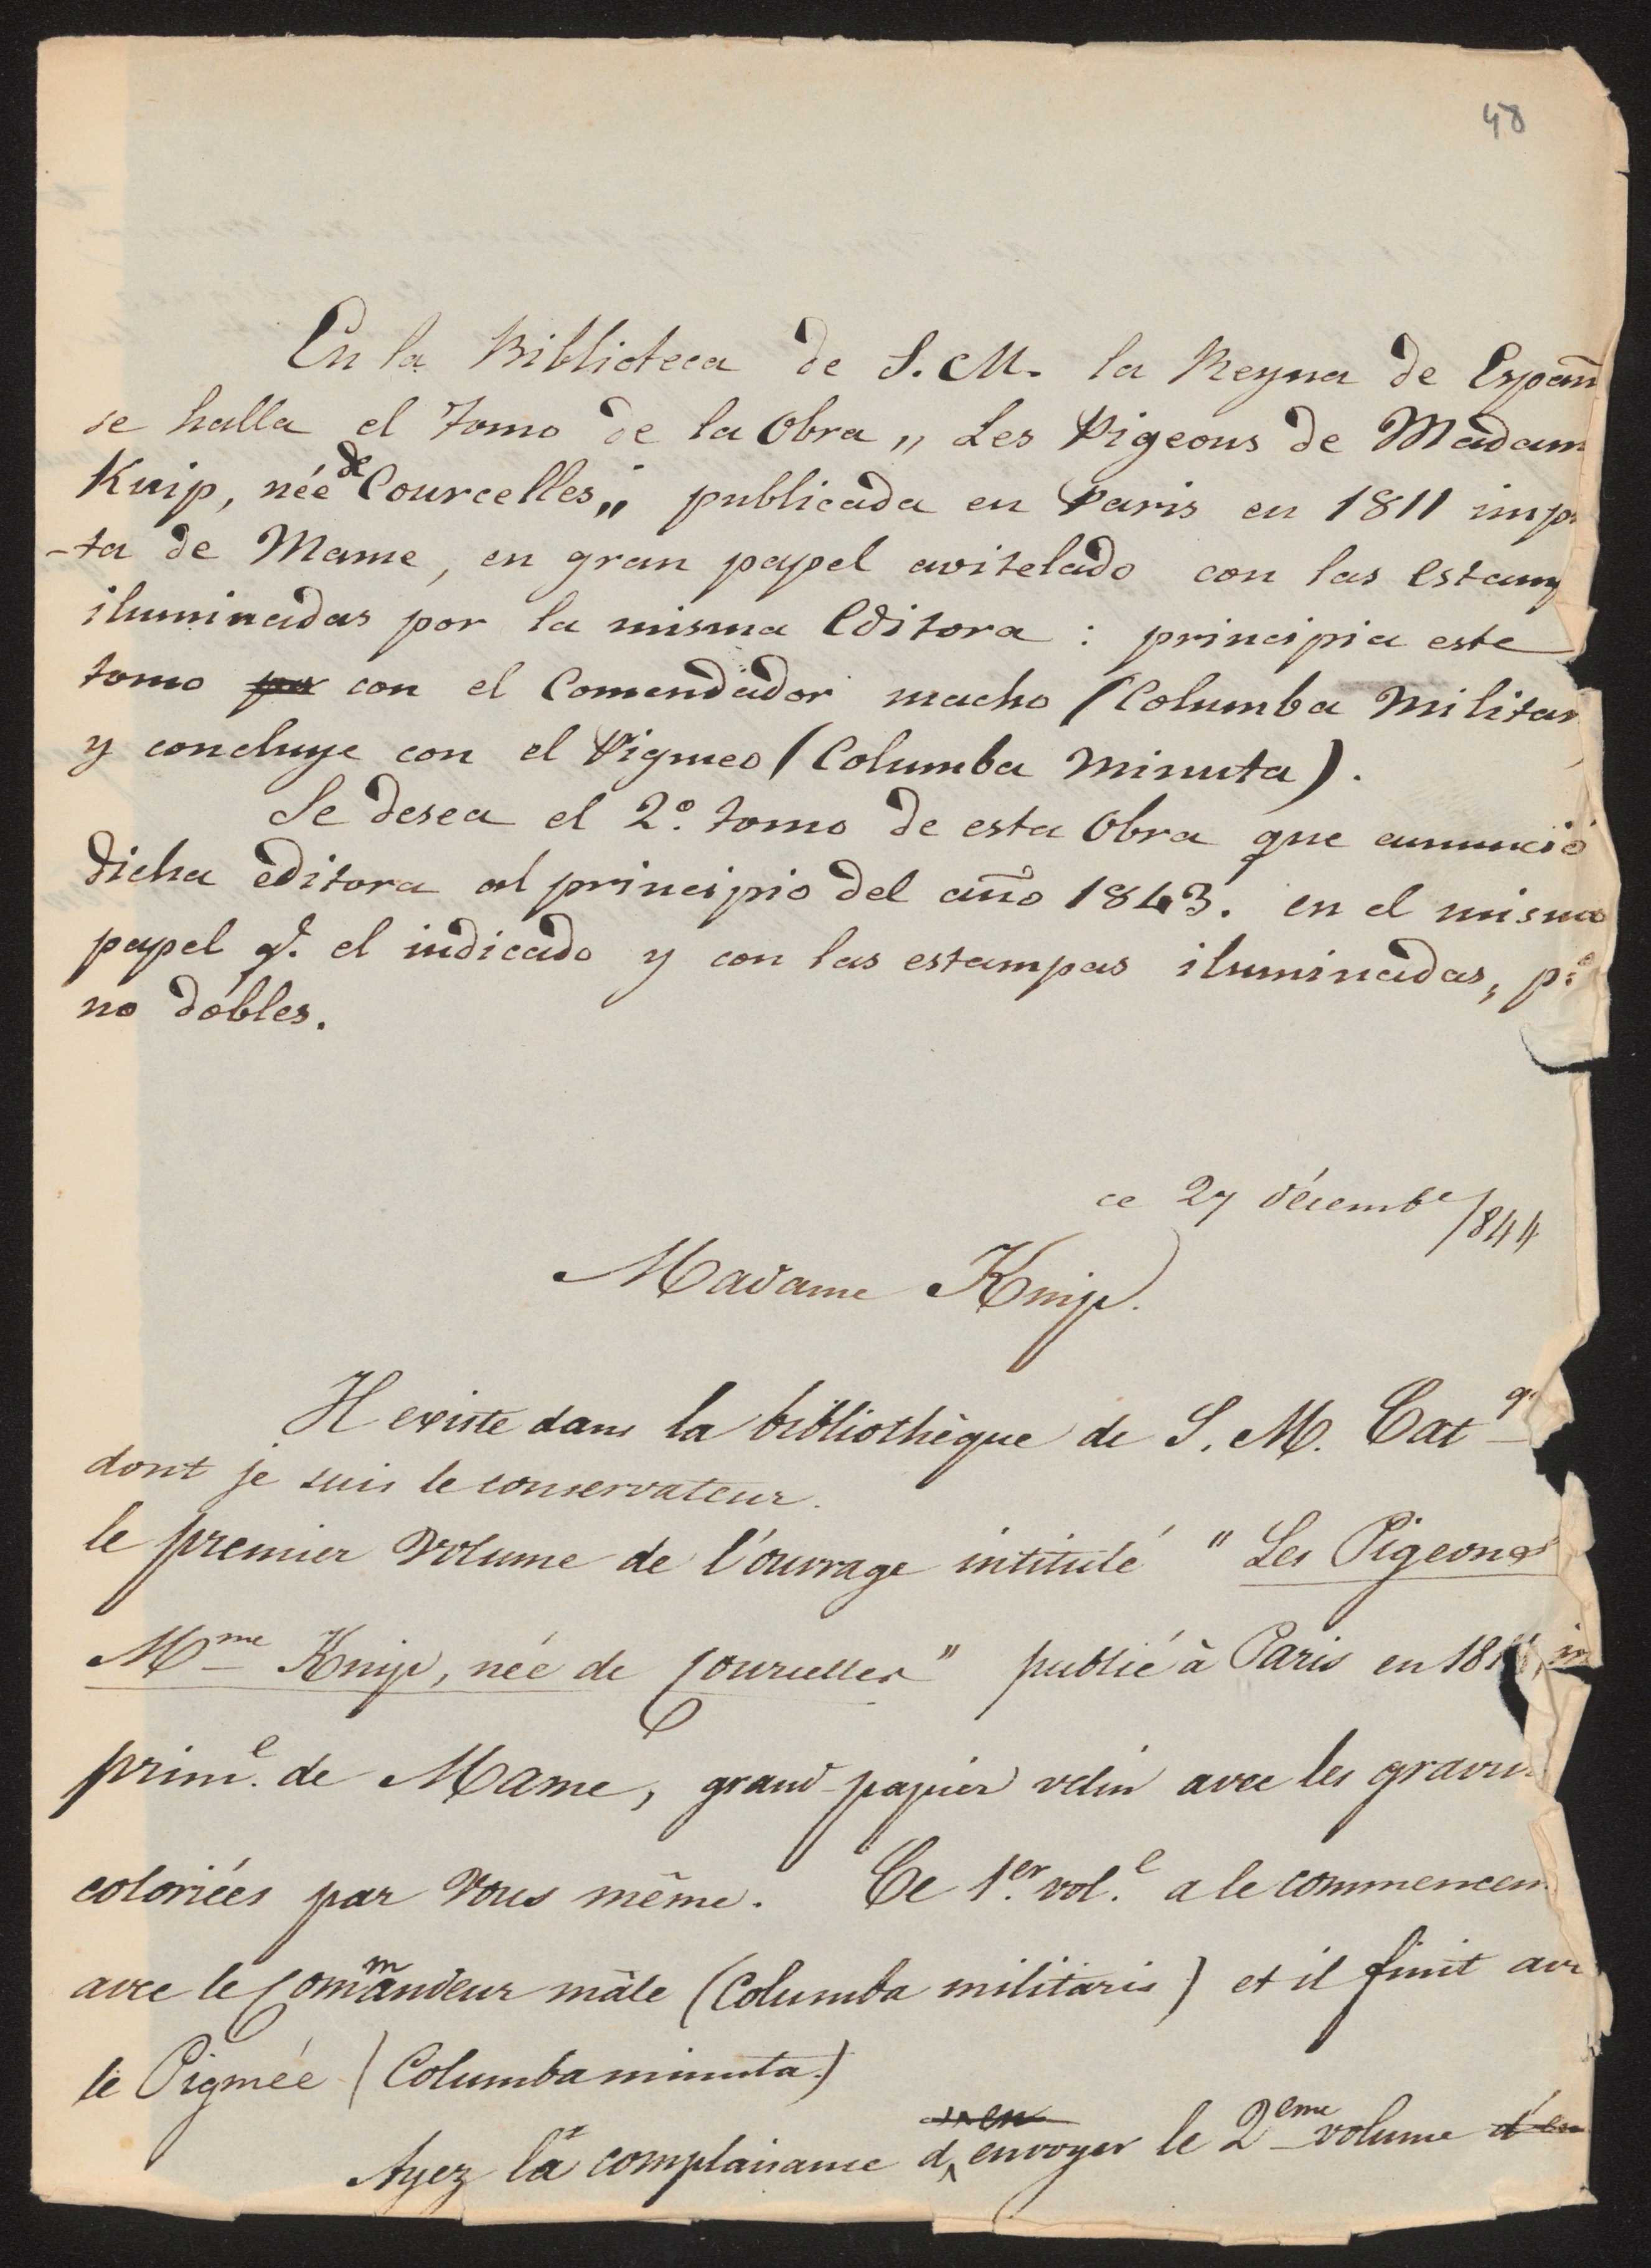 48
En la Biblioteca de S. M. la Reyna de Españ
se halla el tomo de la Obra „ Les Pigeons de Madam
Knip, née de Courcelles „ publicada en Paris en 1811 imp
-ta de Mame, en gran papel avitelado con las Estamp
iluminadas por la misma Editora : principia este
tomo con el Comendador macho (Columba Militar
y concluye con el Pigmeo (Columba Minuta).
Se desea el 2º. tomo de esta Obra que anunció
dicha editora al principio del año 1843. en el mismo
papel q.e el indicado y con las estampas iluminadas,
no dobles.
ce 27 décembe 1844
Madame Knip.
Il existe dans la bibliothèque de S. M. Cat
dont je suis le conservateur.
le premier volume de l'ouvrage intitulé " Les Pigeons
Mme Knip, née de Courcelles " publié à Paris en 181 im
prim.e de Mame, grand papier vélin avec les gravu
coloriées par vous même. Ce 1er. vol.e a le commencem
avec le Commandeur mâle (Columba militaris) et il finit av
le Pigmée (Columba minuta.)
Ayez la complaisance d'envoyer le 2eme volume d'en